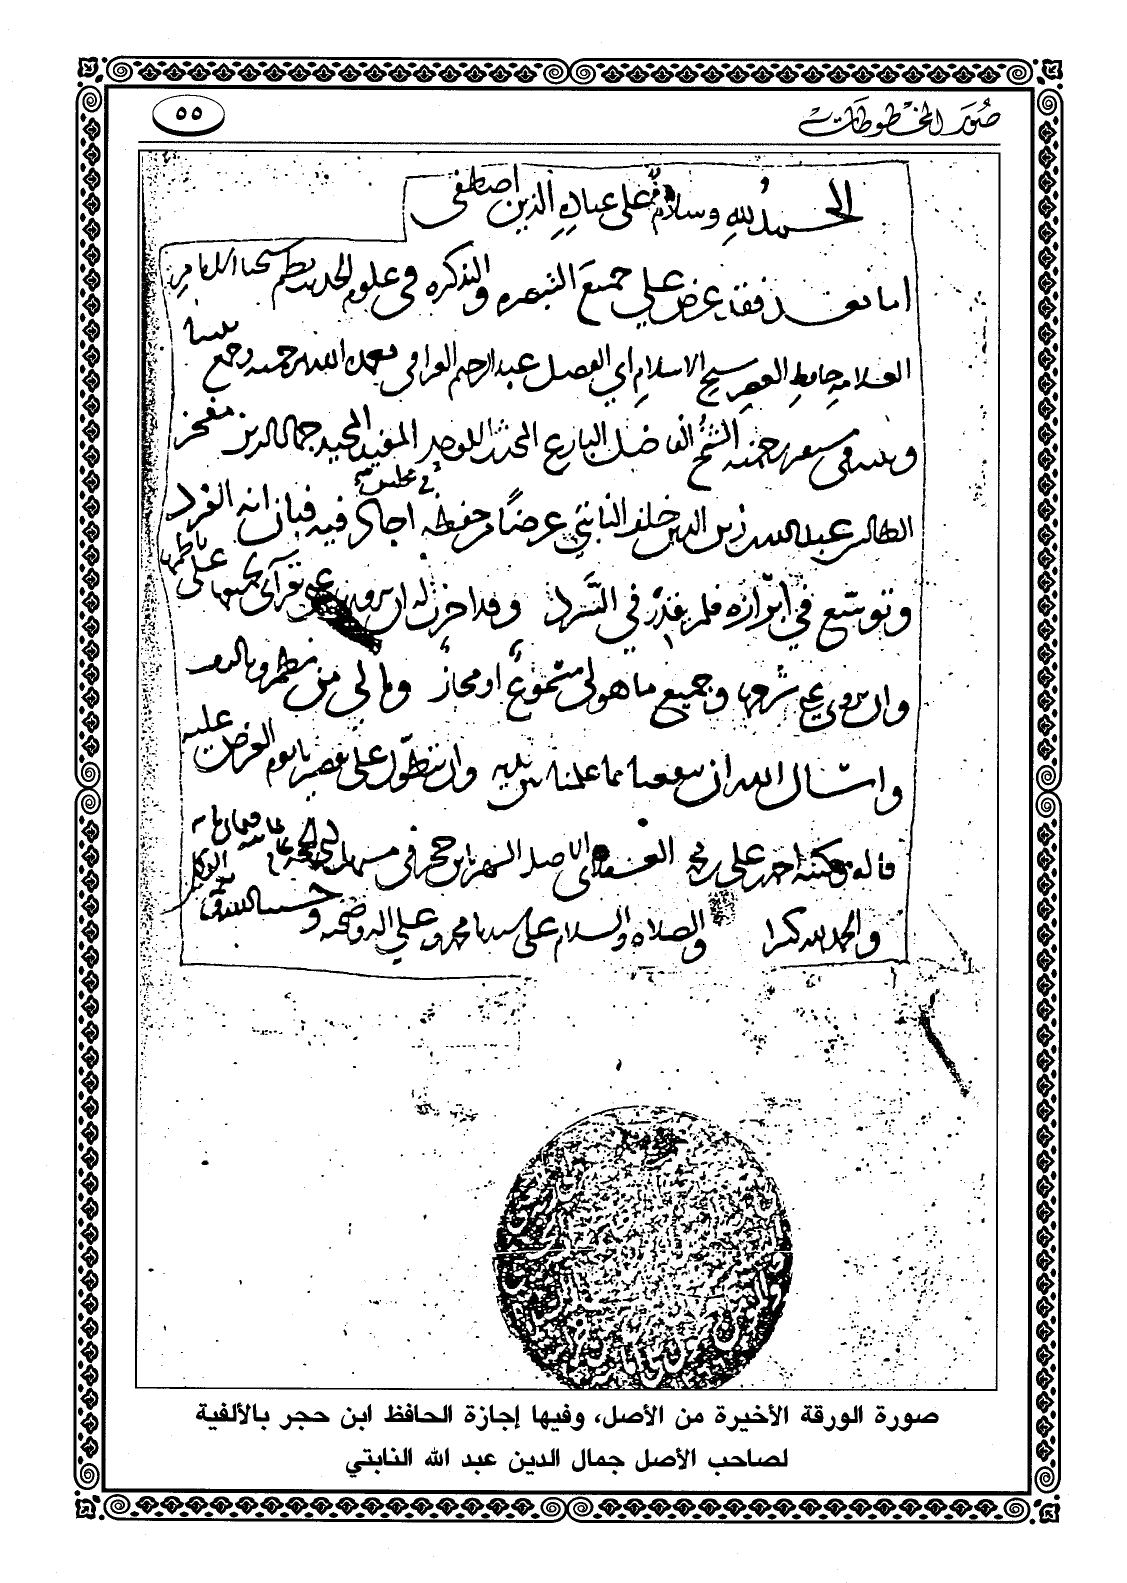 صُوَر المخطوطات
٥٥
الحمد لله وسلام على عباده الذين اصطفى
اما بعد فقد عرض علي جميع التبصره والتذكره في علوم الحديث نظم شيخنا الامام
العلامه حافظ العصر شيخ الاسلام ابي الفضل عبد الرحيم العراقي تغمده الله برحمته وجمع بيننا
وبينه في مستقر رحمته الشيخ الفاضل البارع المحدث الاوحد المفيد المجيد جمال الدين مفخر
في مجلس
الطالبين عبد الله بن زين الدين خلف النابتي عرضا من حفظه اجاد فيه فبان انه الفرد
وتوسع في ابرازه فلم يقدر في السرد وقد اجزت له ان يرويها عني بقرأتي لجميعها على ناظمها
وان يروي عني شرحها وجميع ما هو لي مسموع او مجاز ومالي من نظم
واسال الله ان ينفعنا بما علمنا وان يتطول على تقصيرنا يوم العرض عليه
قاله وكتبه احمد بن علي بن الاصل الشهير بابن حجر في
والحمد لله كثيرا والصلاه والسلام على سيدنا محمد وعلى اله وصحبه وحسبنا الله
صورة الورقة الأخيرة من الأصل، وفيها إجازة الحافظ ابن حجر بالألفية
لصاحب الأصل جمال الدين عبد الله النابتي